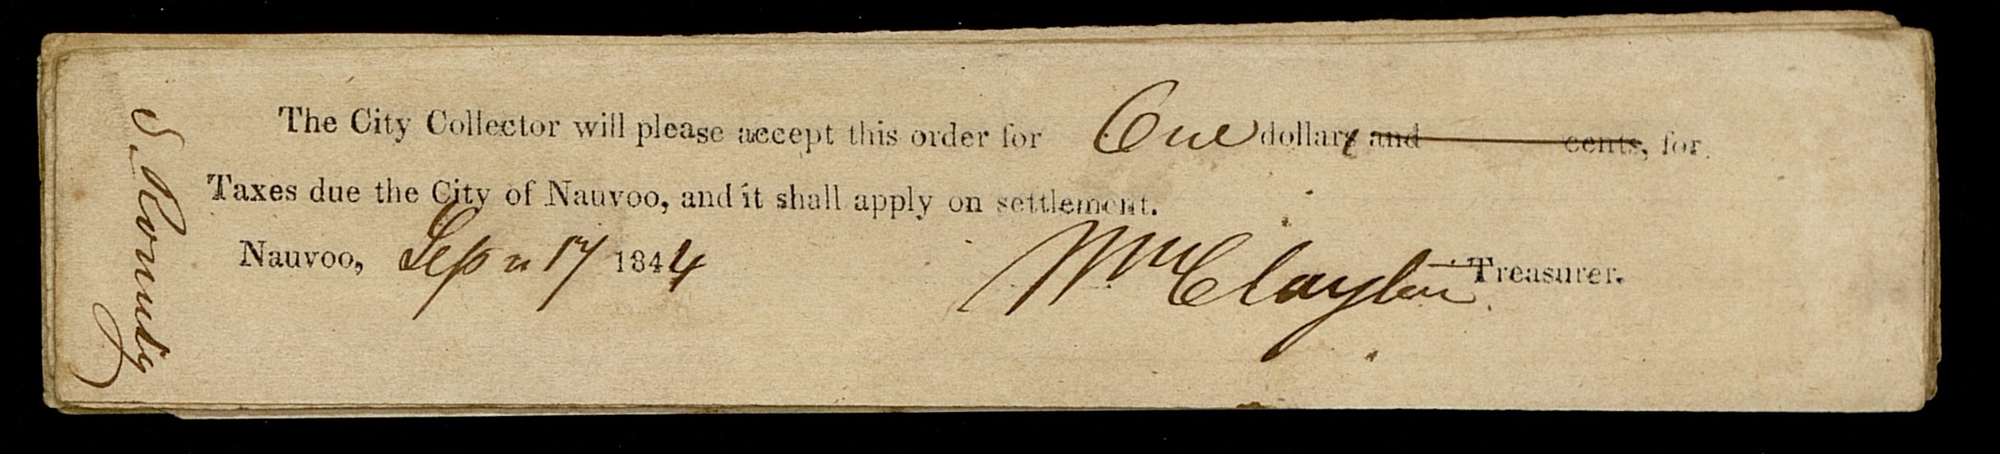 The City Collector will please accept this order for One dollars and cents, for
Taxes due the City of Nauvoo, and it shall apply on settlement.
Nauvoo, Sep " 17 1844 Wm Clayton Treasurer.
S. Romney